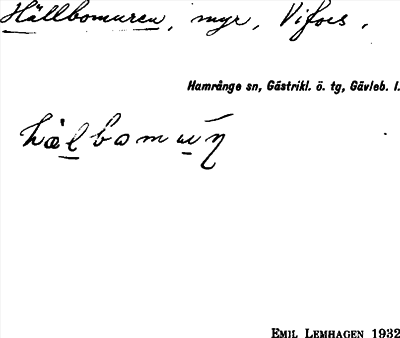 Hällbomuren, myr, Vifors,
Hamrånge sn, Gästrikl. ö. tg, Gävleb. l.
EMIL LEMHAGEN 1932